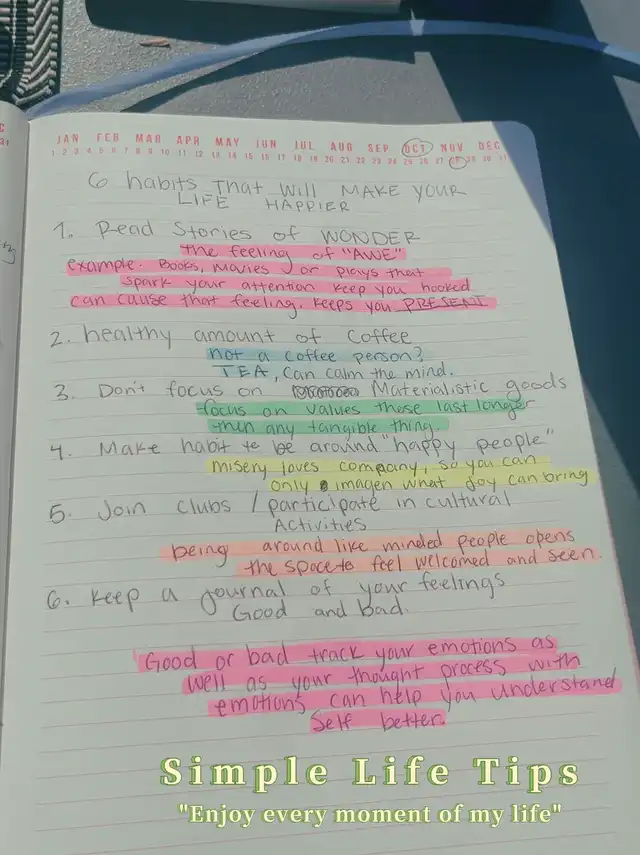 JAN FEB MAR APR MAY JUN JUL AUG SEP OCT NOV DEC
1 2 3 4 5 6 7 8 9 10 11 12 13 14 15 16 17 18 19 20 21 22 23 24 25 26 27 28 29 30 31
6 habits That will MAKE YOUR
LIFE HAPPIER
1. Read Stories of WONDER
the feeling of "AWE"
example. Books, Movies or plays that
spark your attention keep you hooked
can cause that feeling. keeps you PRESENT
2. healthy amount of Coffee
not a coffee person?
TEA, Can calm the mind.
3. Don't focus on Materialistic goods
focus on values those last longer
than any tangible thing.
4. Make habit to be around "happy people"
misery loves company, so you can
only imagen what Joy can bring
5. Join clubs / participate in cultural
Activities
being around like minded people opens
the space to feel welcomed and seen.
6. Keep a Journal of your feelings
Good and bad.
Good or bad track your emotions as
well as your thought process with
emotions can help you understand
Self better.
Simple Life Tips
"Enjoy every moment of my life"